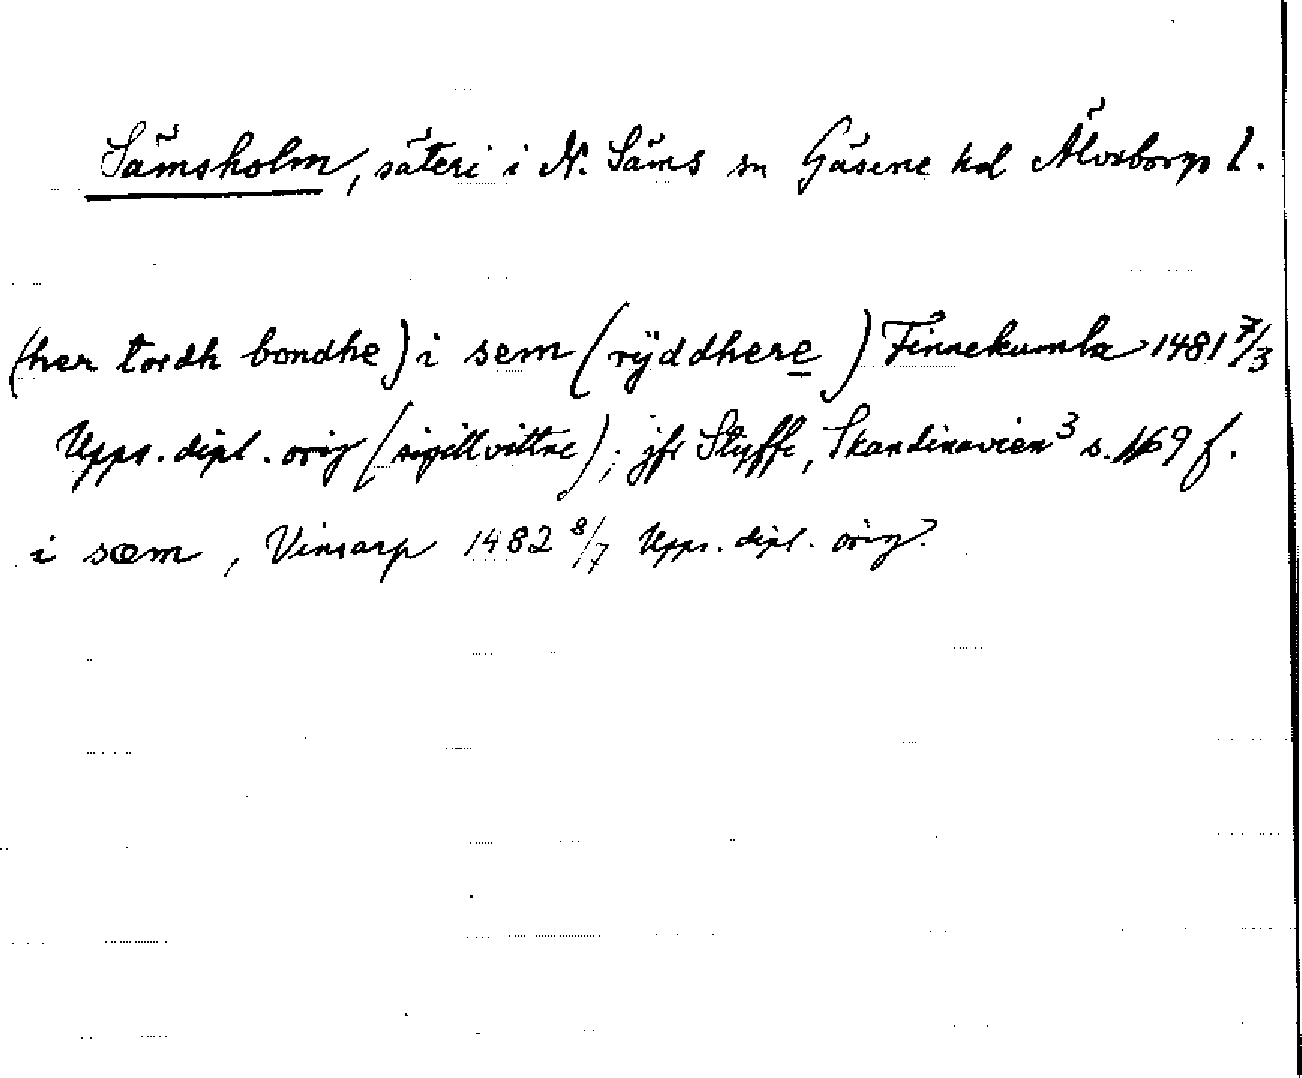 Sämsholm, säteri i N. Säms sn Gäsene hd Älvsborgs l.
(her tordh bondhe) i sem (rÿddhere) Finnekumla 1481 7/3
Upps. dipl. orig (sigillvittne); jfr Styffe, Skandinavien³ s. 169 f.
i sæm, Vinsarp 1482 8/7 Upps. dipl. orig.